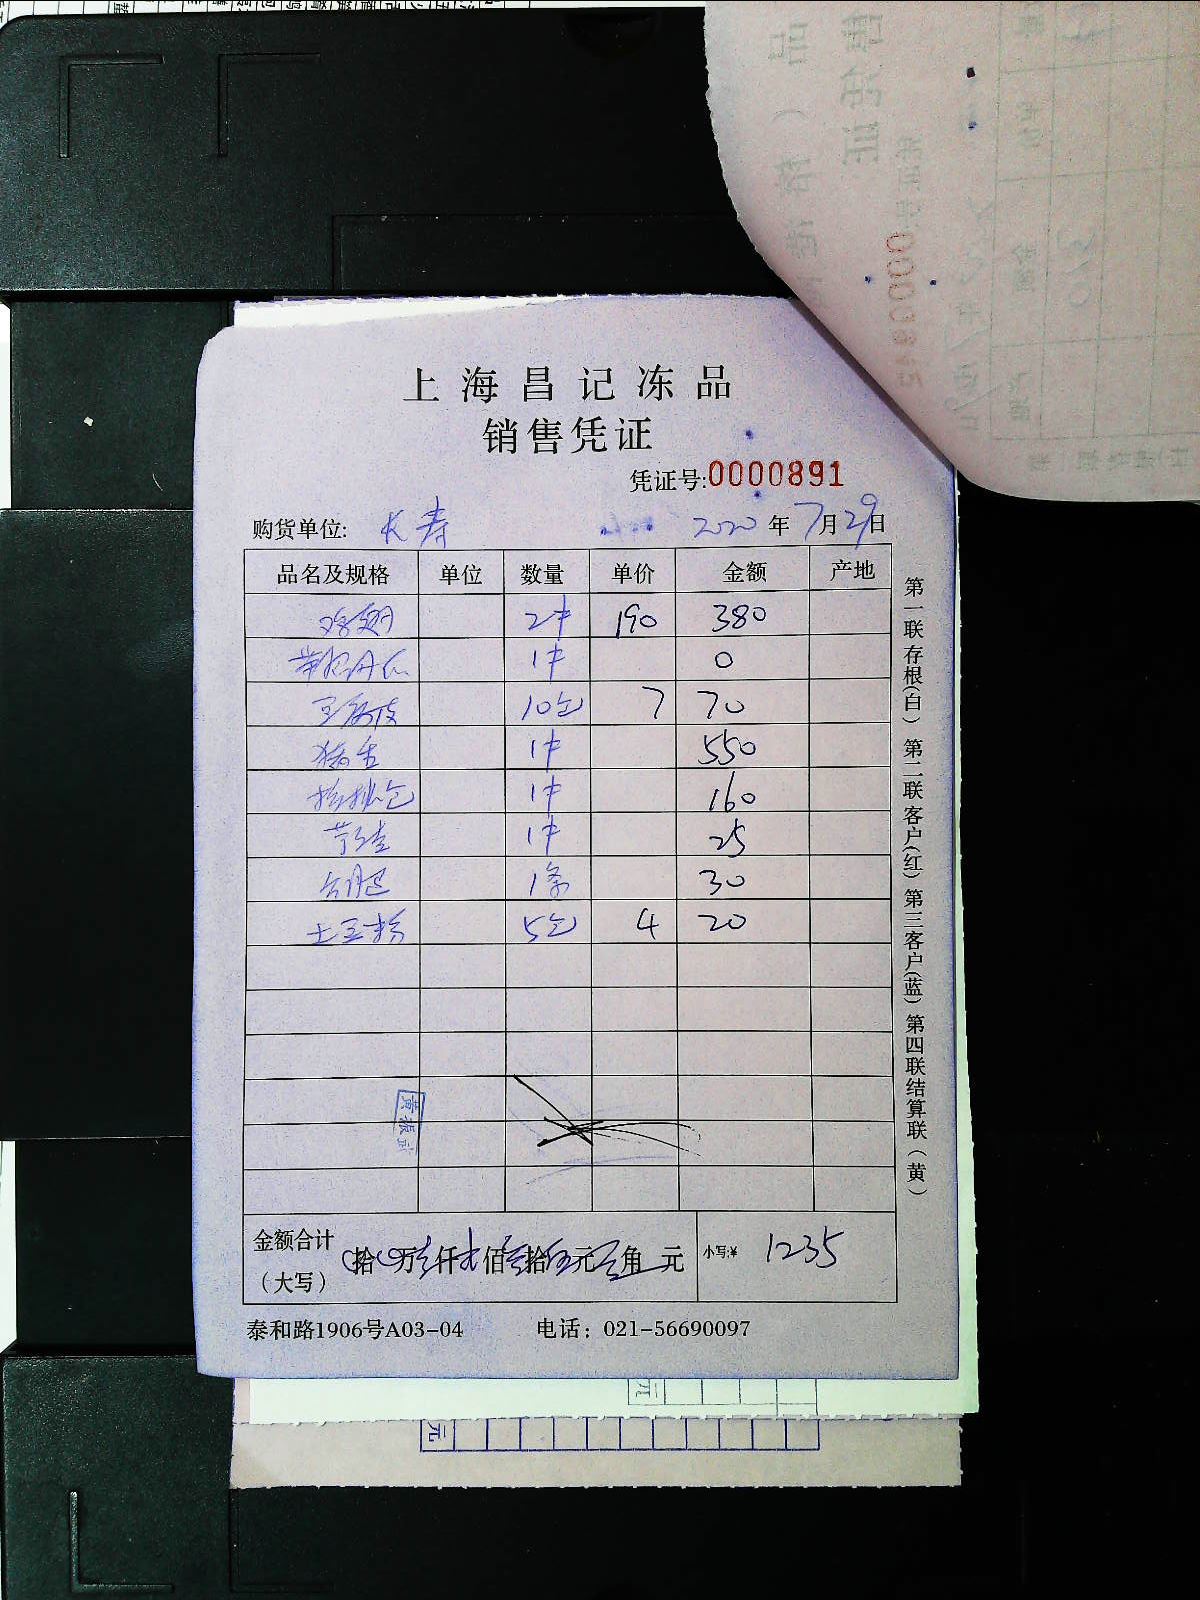 上海昌记冻品
销售凭证
凭证号:0000891
购货单位: 长寿 2020年7月29日
品名及规格 单位 数量 单价 金额 产地
鸡翅 2件 190 380
1件 0
豆腐皮 10包 7 70
猪舌 1件 550
1件 160
1件 25
1条 30
土豆粉 5包 4 20
黄振武
金额合计
(大写) 拾 万壹仟 佰叁拾伍元 角 元 小写:¥ 1235
泰和路1906号A03-04 电话：021-56690097
第一联存根(白) 第二联客户(红) 第三客户(蓝) 第四联结算联(黄)